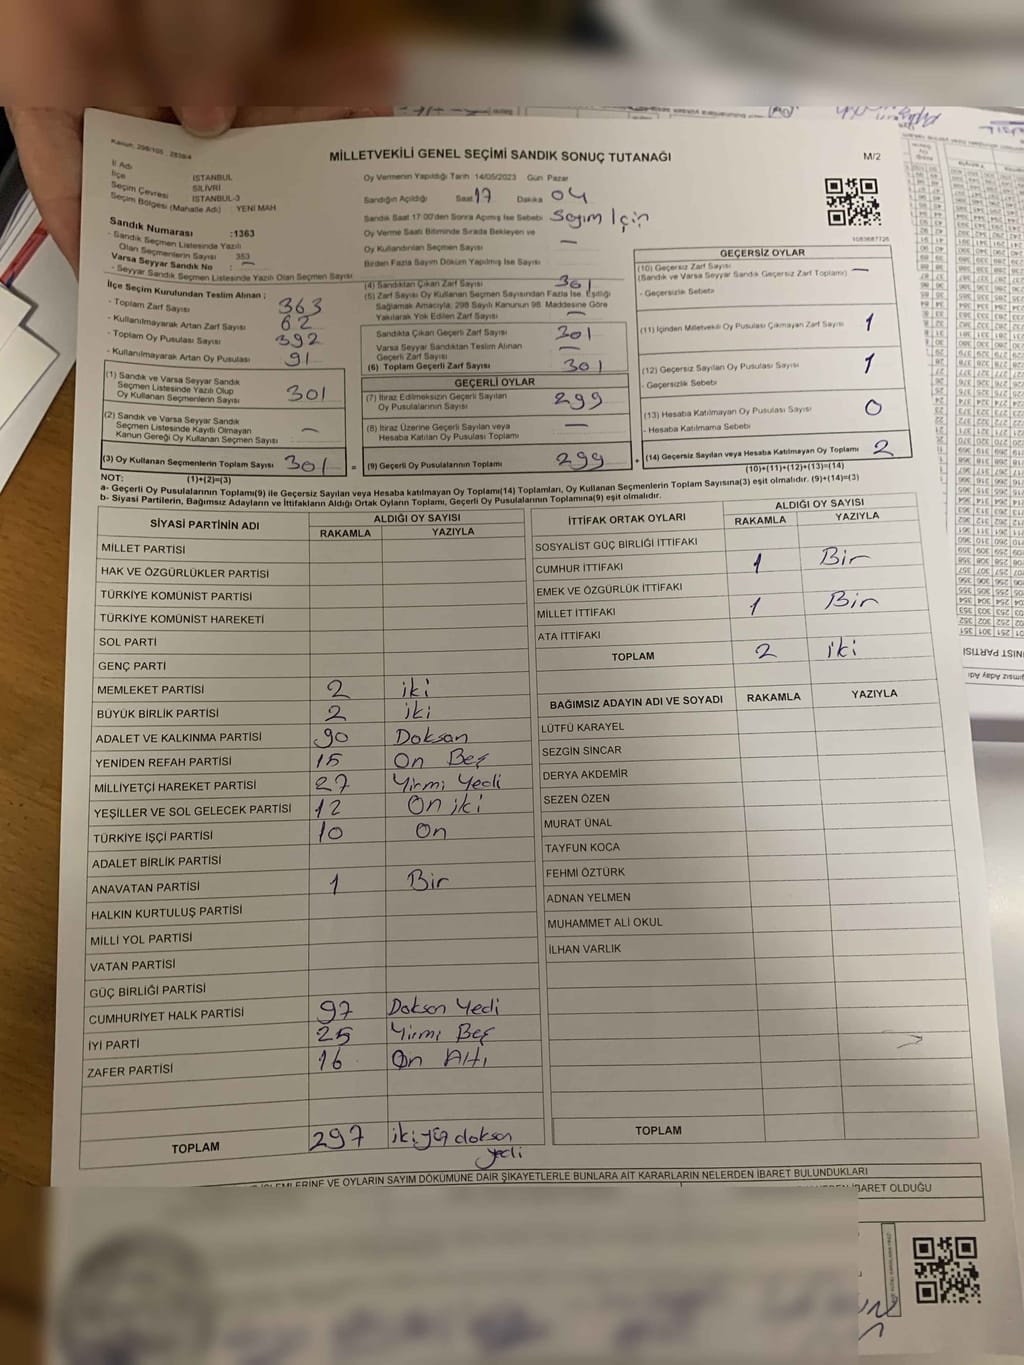 Kanun: 298/105 , 2839/4
MİLLETVEKİLİ GENEL SEÇİMİ SANDIK SONUÇ TUTANAĞI
M/2
İl Adı : İSTANBUL
İlçe : SİLİVRİ
Seçim Çevresi : İSTANBUL-3
Seçim Bölgesi (Mahalle Adı) : YENİ MAH
Sandık Numarası :1363
- Sandık Seçmen Listesinde Yazılı
Olan Seçmenlerin Sayısı : 353
Varsa Seyyar Sandık No : —
- Seyyar Sandık Seçmen Listesinde Yazılı Olan Seçmen Sayısı
İlçe Seçim Kurulundan Teslim Alınan ;
- Toplam Zarf Sayısı 363
- Kullanılmayarak Artan Zarf Sayısı 62
- Toplam Oy Pusulası Sayısı 392
- Kullanılmayarak Artan Oy Pusulası 91
(1) Sandık ve Varsa Seyyar Sandık
Seçmen Listesinde Yazılı Olup
Oy Kullanan Seçmenlerin Sayısı 301
(2) Sandık ve Varsa Seyyar Sandık
Seçmen Listesinde Kayıtlı Olmayan
Kanun Gereği Oy Kullanan Seçmen Sayısı —
(3) Oy Kullanan Seçmenlerin Toplam Sayısı 301 =
Oy Vermenin Yapıldığı Tarih 14/05/2023 Gün Pazar
Sandığın Açıldığı Saat 17 Dakika 04
Sandık Saat 17:00'den Sonra Açımış İse Sebebi Sayım İçin
Oy Verme Saati Bitiminde Sırada Bekleyen ve
Oy Kullandırılan Seçmen Sayısı —
Birden Fazla Sayım Döküm Yapılmış İse Sayısı
(4) Sandıktan Çıkan Zarf Sayısı 301
(5) Zarf Sayısı Oy Kullanan Seçmen Sayısından Fazla İse, Eşitliği
Sağlamak Amacıyla, 298 Sayılı Kanunun 98. Maddesine Göre
Yakılarak Yok Edilen Zarf Sayısı —
Sandıkta Çıkan Geçerli Zarf Sayısı 301
Varsa Seyyar Sandıktan Teslim Alınan
Geçerli Zarf Sayısı —
(6) Toplam Geçerli Zarf Sayısı 301
GEÇERLİ OYLAR
(7) İtiraz Edilmeksizin Geçerli Sayılan
Oy Pusulalarının Sayısı 299
(8) İtiraz Üzerine Geçerli Sayılan veya
Hesaba Katılan Oy Pusulası Toplamı —
(9) Geçerli Oy Pusulalarının Toplamı 299 +
1083687726
GEÇERSİZ OYLAR
(10) Geçersiz Zarf Sayısı
(Sandık ve Varsa Seyyar Sandık Geçersiz Zarf Toplamı) —
- Geçersizlik Sebebi
(11) İçinden Milletvekili Oy Pusulası Çıkmayan Zarf Sayısı 1
(12) Geçersiz Sayılan Oy Pusulası Sayısı 1
- Geçersizlik Sebebi
(13) Hesaba Katılmayan Oy Pusulası Sayısı 0
- Hesaba Katılmama Sebebi
(14) Geçersiz Sayılan veya Hesaba Katılmayan Oy Toplamı 2
NOT: (1)+(2)=(3)
(10)+(11)+(12)+(13)=(14)
a- Geçerli Oy Pusulalarının Toplamı(9) ile Geçersiz Sayılan veya Hesaba katılmayan Oy Toplamı(14) Toplamları, Oy Kullanan Seçmenlerin Toplam Sayısına(3) eşit olmalıdır. (9)+(14)=(3)
b- Siyasi Partilerin, Bağımsız Adayların ve İttifakların Aldığı Ortak Oyların Toplamı, Geçerli Oy Pusulalarının Toplamına(9) eşit olmalıdır.
SİYASİ PARTİNİN ADI ALDIĞI OY SAYISI
RAKAMLA YAZIYLA
MİLLET PARTİSİ
HAK VE ÖZGÜRLÜKLER PARTİSİ
TÜRKİYE KOMÜNİST PARTİSİ
TÜRKİYE KOMÜNİST HAREKETİ
SOL PARTİ
GENÇ PARTİ
MEMLEKET PARTİSİ 2 iki
BÜYÜK BİRLİK PARTİSİ 2 iki
ADALET VE KALKINMA PARTİSİ 90 Doksan
YENİDEN REFAH PARTİSİ 15 On Beş
MİLLİYETÇİ HAREKET PARTİSİ 27 Yirmi Yedi
YEŞİLLER VE SOL GELECEK PARTİSİ 12 On iki
TÜRKİYE İŞÇİ PARTİSİ 10 On
ADALET BİRLİK PARTİSİ
ANAVATAN PARTİSİ 1 Bir
HALKIN KURTULUŞ PARTİSİ
MİLLİ YOL PARTİSİ
VATAN PARTİSİ
GÜÇ BİRLİĞİ PARTİSİ
CUMHURİYET HALK PARTİSİ 97 Doksan Yedi
İYİ PARTİ 25 Yirmi Beş
ZAFER PARTİSİ 16 On Altı
TOPLAM 297 iki yüz doksan
yedi
İTTİFAK ORTAK OYLARI ALDIĞI OY SAYISI
RAKAMLA YAZIYLA
SOSYALİST GÜÇ BİRLİĞİ İTTİFAKI
CUMHUR İTTİFAKI 1 Bir
EMEK VE ÖZGÜRLÜK İTTİFAKI
MİLLET İTTİFAKI 1 Bir
ATA İTTİFAKI
TOPLAM 2 iki
BAĞIMSIZ ADAYIN ADI VE SOYADI RAKAMLA YAZIYLA
LÜTFÜ KARAYEL
SEZGİN SİNCAR
DERYA AKDEMİR
SEZEN ÖZEN
MURAT ÜNAL
TAYFUN KOCA
FEHMİ ÖZTÜRK
ADNAN YELMEN
MUHAMMET ALİ OKUL
İLHAN VARLIK
TOPLAM
VE OYLARIN SAYIM DÖKÜMÜNE DAİR ŞİKAYETLERLE BUNLARA AİT KARARLARIN NELERDEN İBARET BULUNDUKLARI
İBARET OLDUĞU